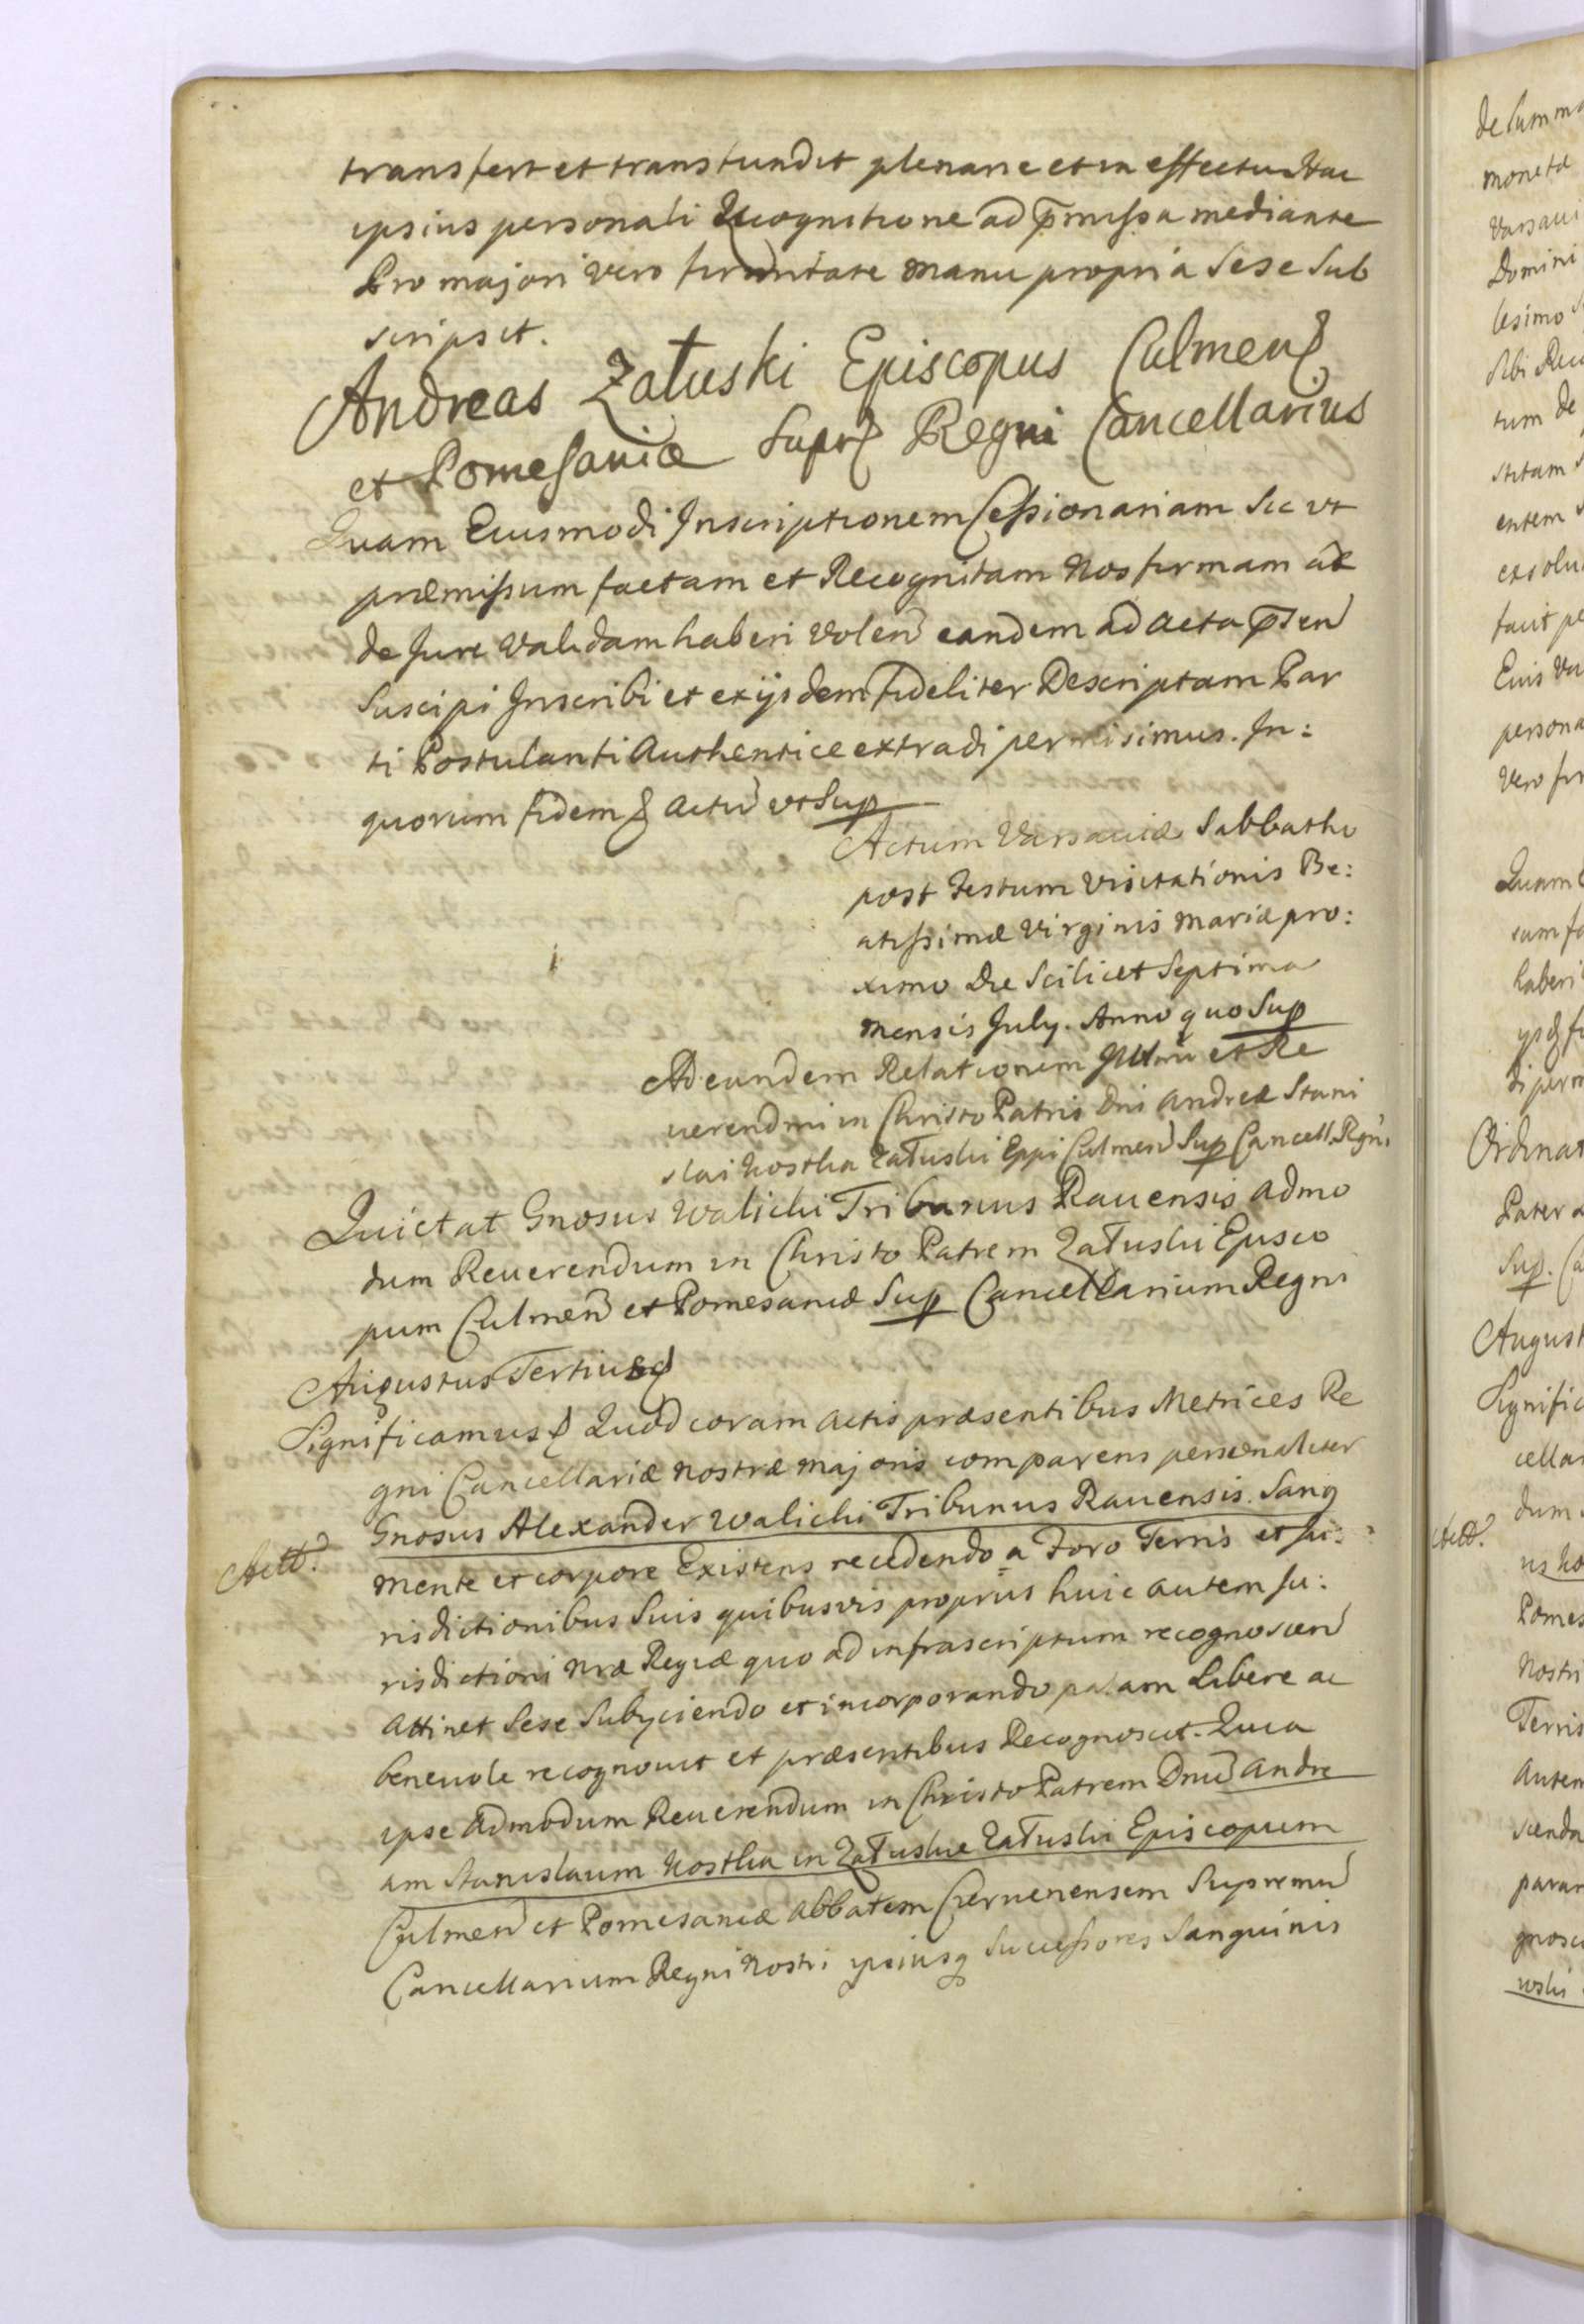 transfert et transfundit plenarie et in effectu Hac
ipsius personali Recognitione ad p̄missa mediante
Pro majori vero firmitate manu propria Sese Sub
scripsit.
Andreas Załuski Episcopus Culmen
et Pomesaniæ Supr Regni Cancellarius
Quam Eiusmodi Inscriptionem Cessionariam Sic ut
præmissum factam et Recognitam Nos firmam ac
de Jure Validam haberi Volen eandem ad Acta p̄sen
Suscipi Inscribi et exijsdem fideliter Descriptam Par
ti Postulanti Authentice extradi permisimus. In:
quorum fidem & Actu ut Sup
Actum Varsaviæ Sabbatho
post Festum Visitationis Be:
atissimæ Virginis Mariæ pro:
ximo Die Scilicet Septima
Mensis July. Anno quo Sup
Ad eandem Relationem Illmi et Re
verendmi in Christo Patris Dni Andreæ Stani
slai Kostka Załuski Eppi Culmen Sup Cancell. Regni
Quietat Gnosus Walicki Tribunus Ravensis Admo
dum Reverendum in Christo Patrem Załuski Episco
pum Culmen et Pomesaniæ Sup Cancellarium Regni
Augustus Tertius &
Significamus & Quod coram Actis præsentibus Metrices Re
gni Cancellariæ Nostræ Majoris comparens personaliter
Gnosus Alexander Walicki Tribunus Ravensis. Sang
mente et corpore Existens recedendo a Foro Terris et Ju:
risdictionibus Suis quibusvis proprijs huic autem Ju:
risdictioni Nræ Regiæ quo ad infrascriptum recognoscen
Attinet Sese Subyciendo et incorporando palam Libere ac
benevole recognovit et præsentibus Recognoscit. Quia
ipse Admodum Reverendum in Christo Patrem Dnu Andre
am Stanislaum Kostka in Załuskie Załuski Episcopum
Culmen et Pomesaniæ Abbatem Czervenensem Supremu
Cancellarium Regni Nostri ipsiusq Successores Sanguinis
de Summa
moneta
Domini
tum de
entem
persona
Quam
haberi
Ordinar
Pater
Sup.
August
Signific
cellar
dum
Pomes
Nostri
Terris
Autem